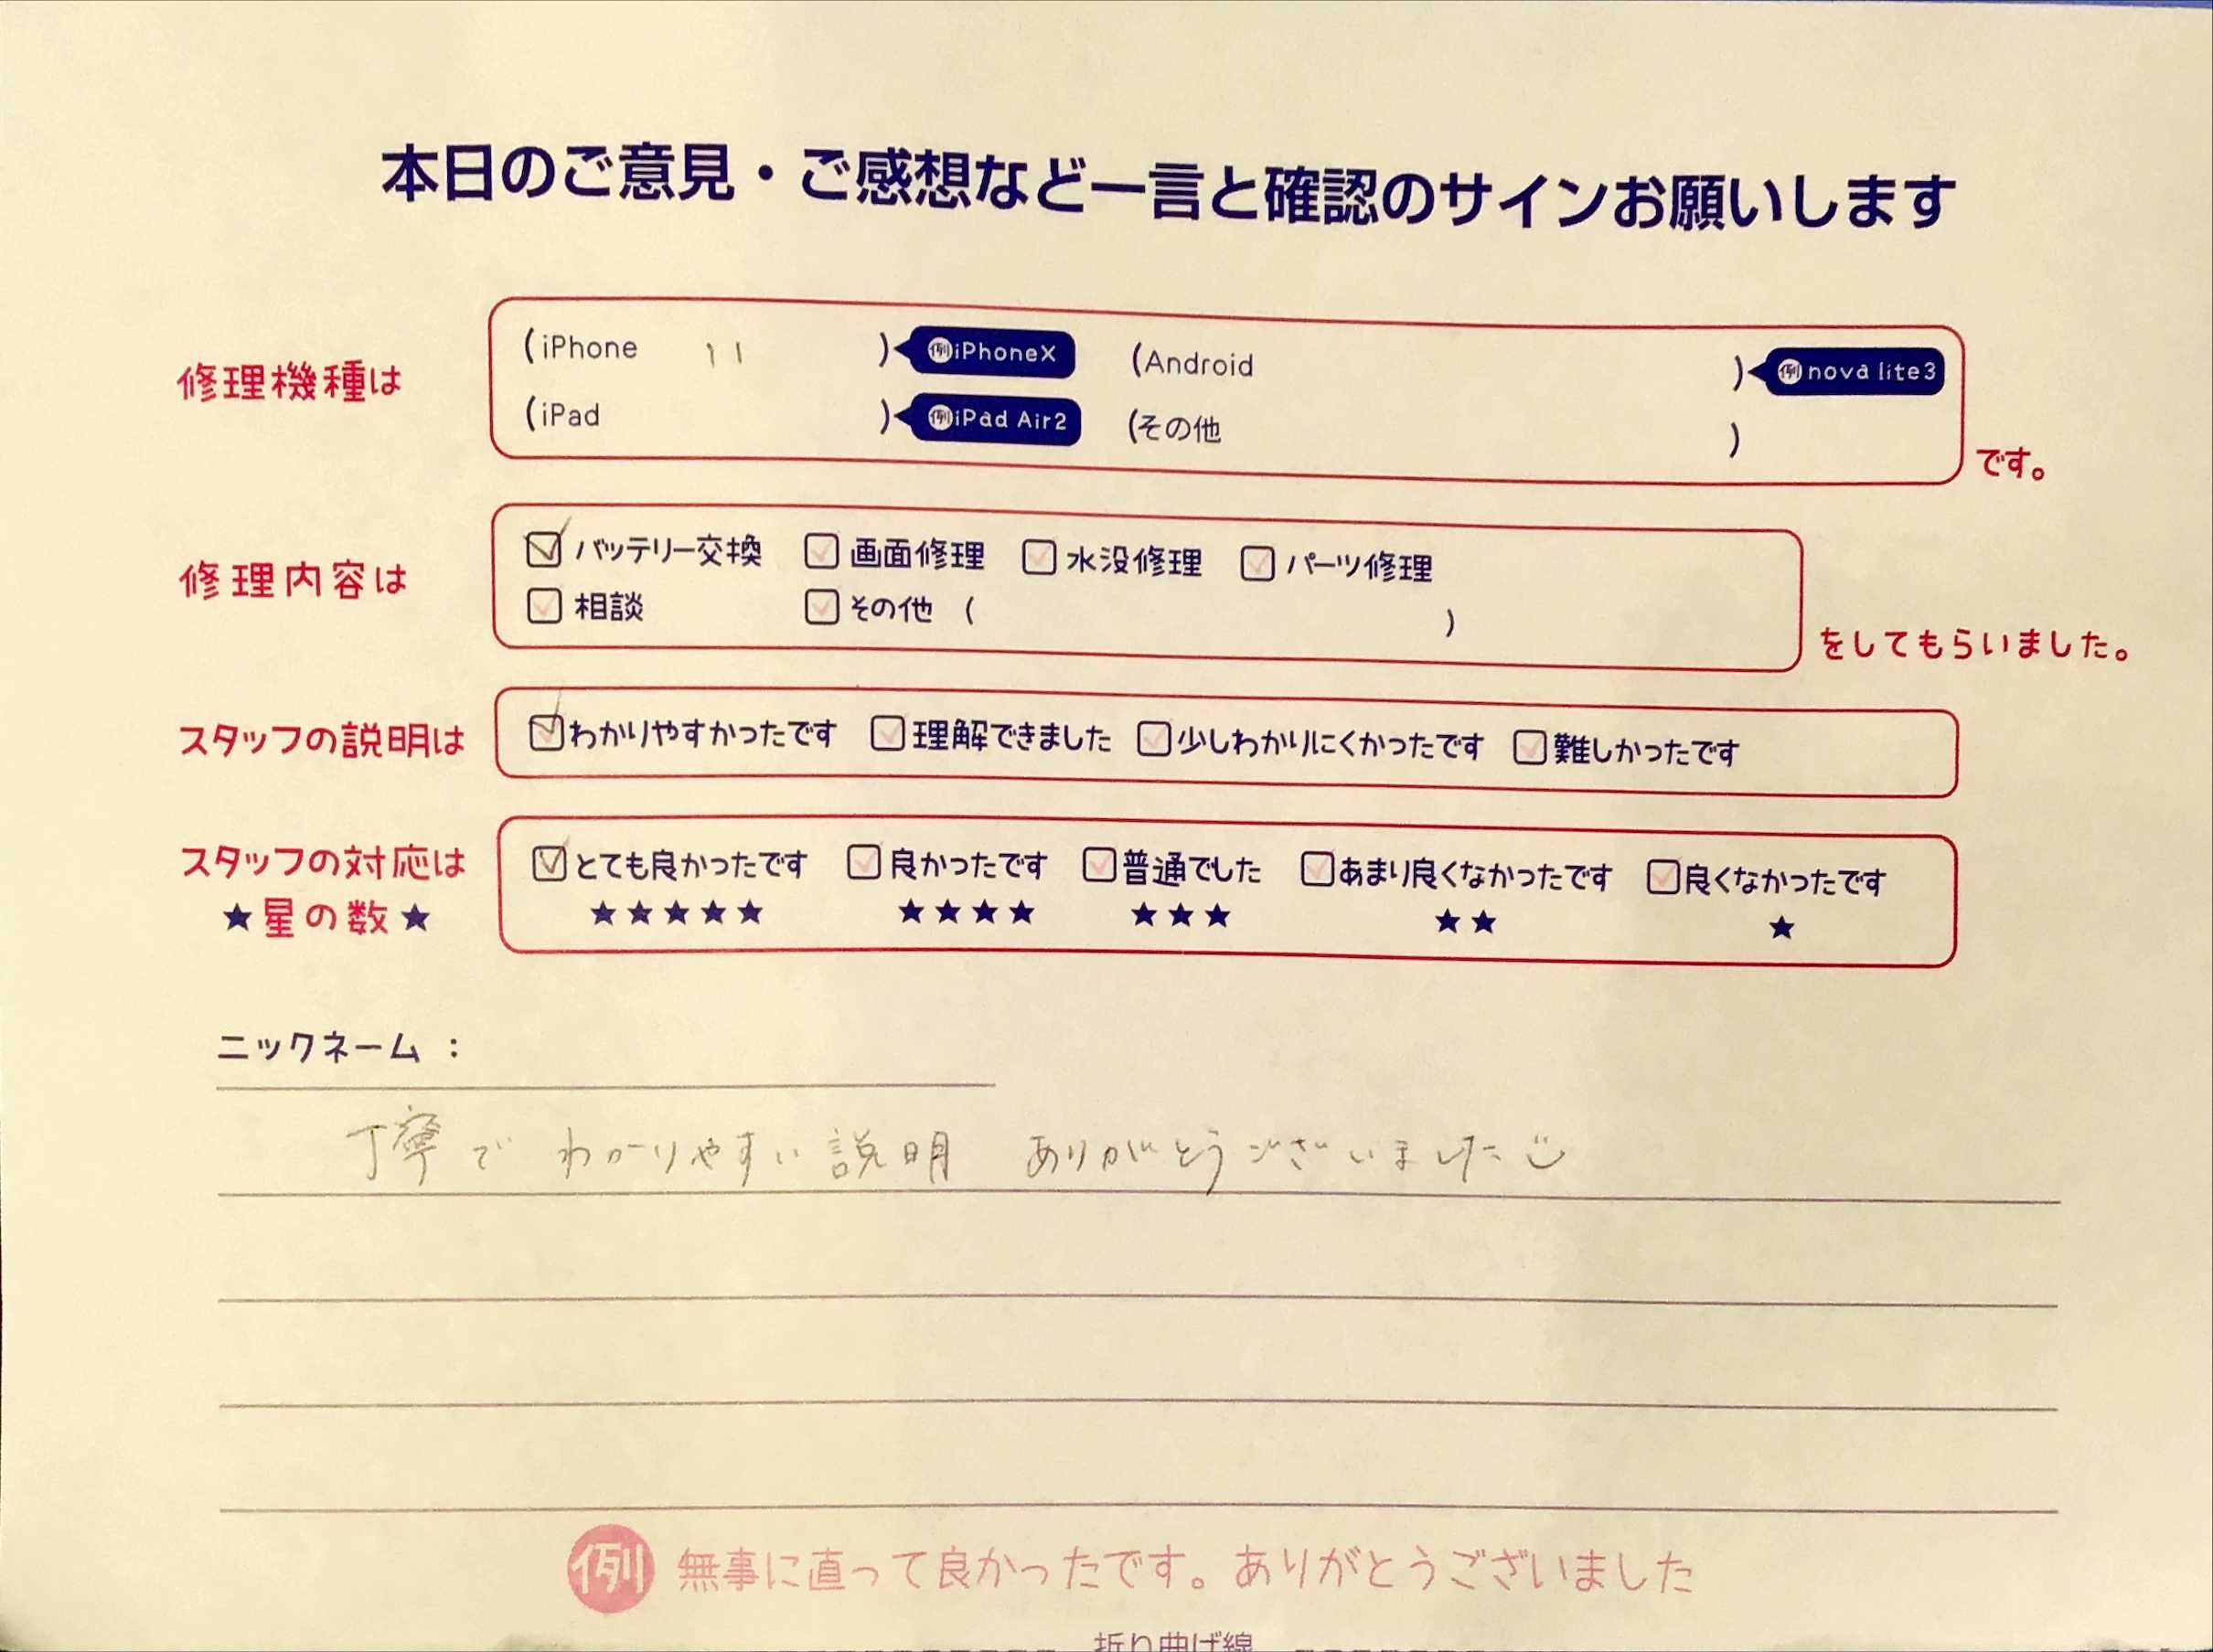 本日のご意見・ご感想など一言と確認のサインお願いします
修理機種は
(iPhone 11 ) 例iPhoneX (Android ) 例nova lite3
(iPad ) 例iPad Air2 (その他 )
です。
修理内容は
バッテリー交換 画面修理 水没修理 パーツ修理
相談 その他 ( )
をしてもらいました。
スタッフの説明は
わかりやすかったです 理解できました 少しわかりにくかったです 難しかったです
スタッフの対応は
★星の数★
とても良かったです 良かったです 普通でした あまり良くなかったです 良くなかったです
★★★★★ ★★★★ ★★★ ★★ ★
ニックネーム :
丁寧で わかりやすい説明 ありがとうございました
例 無事に直って良かったです。ありがとうございました
折り曲げ線